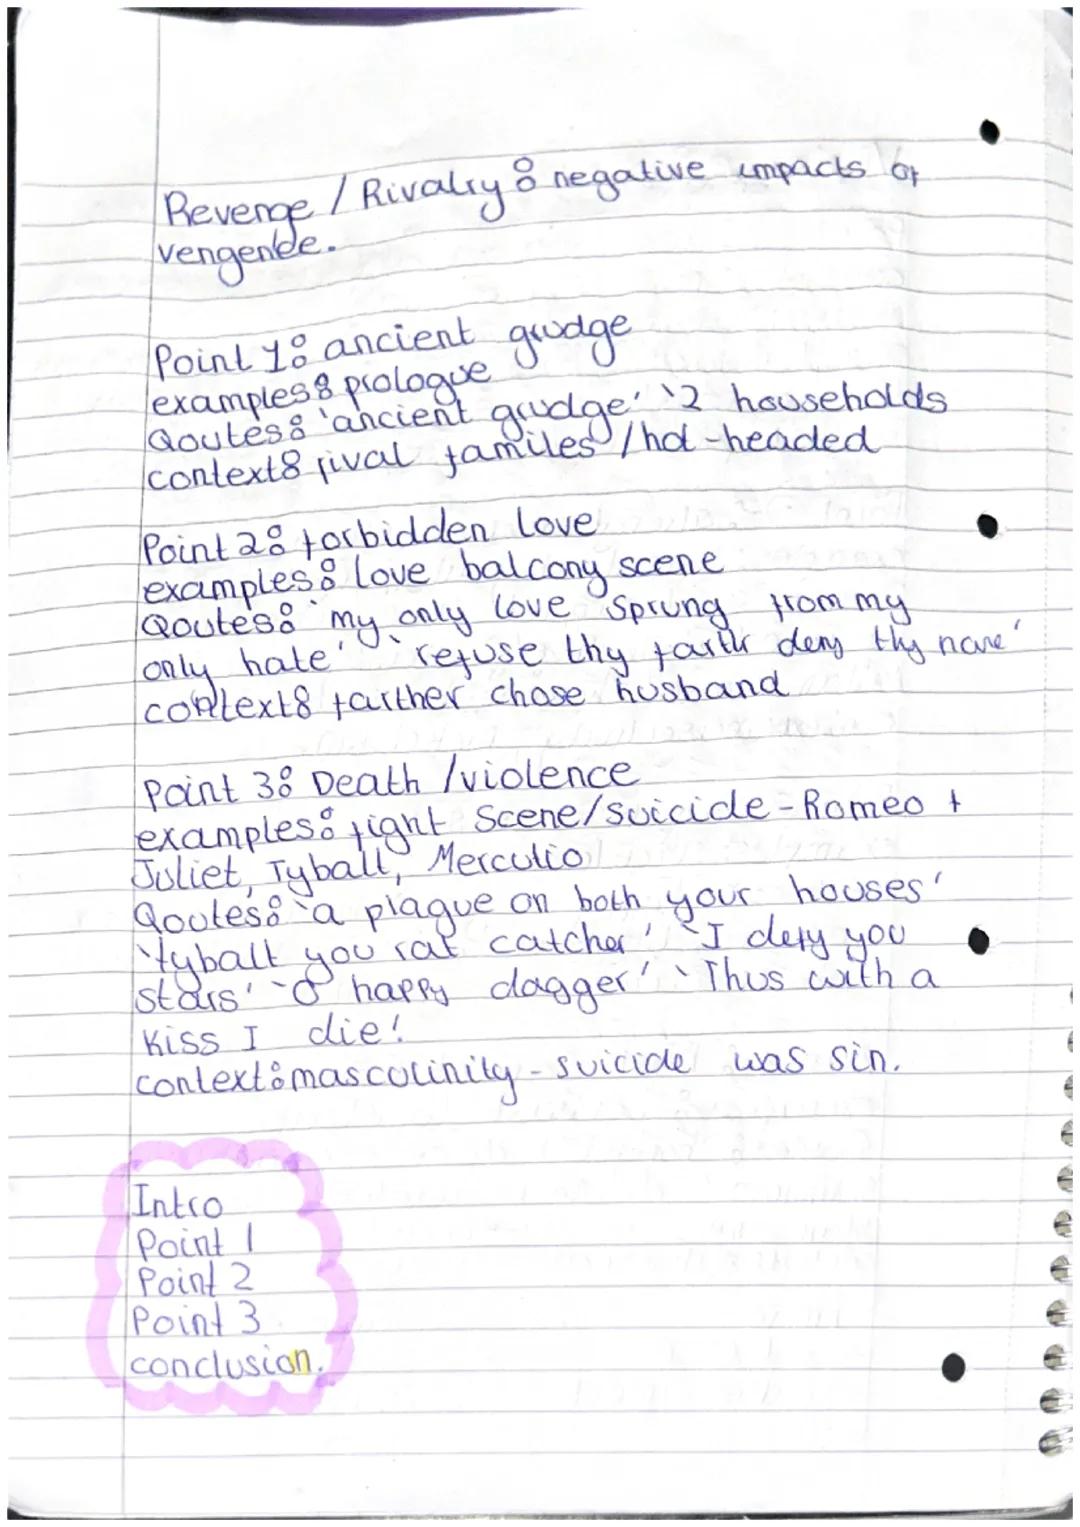 Revenge / Rivalry: negative impacts of
vengence.
Point 1: ancient grudge
examples: prologue
Qoutes: 'ancient grudge' '2 households
context: rival familes / hot-headed
Point 2: forbidden love
examples: love balcony scene
Qoutes: 'my only love sprung from my
only hate' 'refuse thy farthr deny thy name'
context: farther chose husband
Point 3: Death / violence
examples: fight scene/suicide - Romeo +
Juliet, Tyball, Mercutio
Qoutes: 'a plague on both your houses'
'tybalt you rat catcher' 'I defy you
stars' 'O happy dagger' 'Thus with a
kiss I die!
context: masculinity - suicide was sin.
Intro
Point 1
Point 2
Point 3
conclusion.